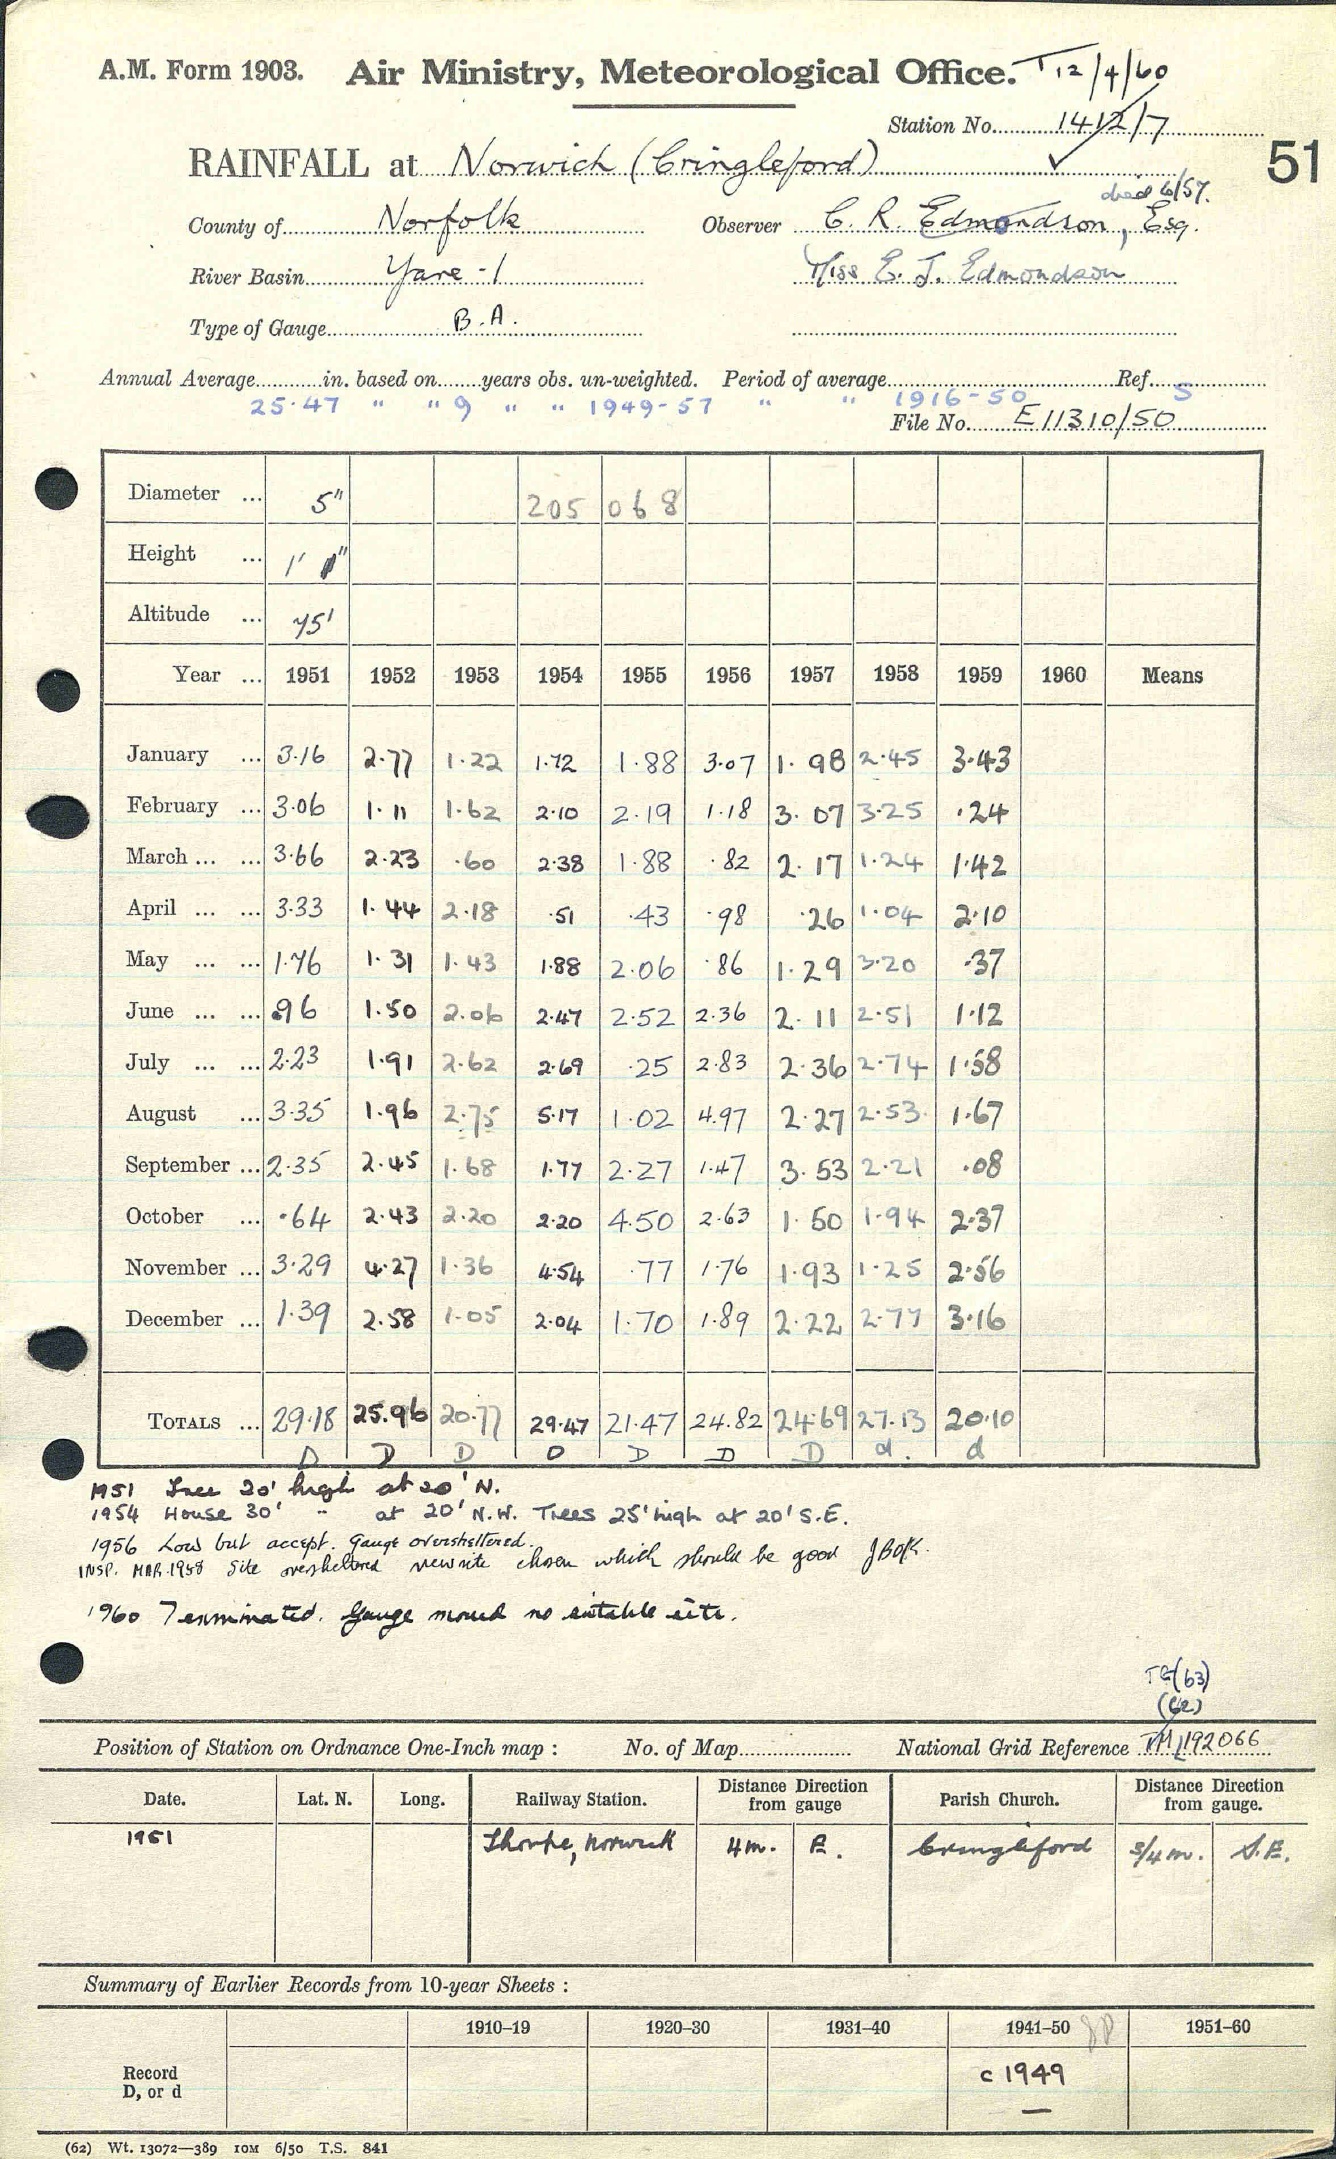 A.M. Form 1903. Air Ministry, Meteorological Office. T 12/4/60
Station No. 1412/7
RAINFALL at Norwich (Cringleford)
51
died 6/57.
County of Norfolk Observer C. R. Edmondson, Esq.
River Basin Yare - 1 Miss E. J. Edmondson
Type of Gauge B.A.
Annual Average in. based on years obs. un-weighted. Period of average Ref. S
25.47 " " 9 " " 1949-57 " " 1916-50
File No. E11310/50
Diameter ... 5" 205 068
Height ... 1'
Altitude ... 75'
Year ... 1951 1952 1953 1954 1955 1956 1957 1958 1959 1960 Means
January ... 3.16 2.77 1.22 1.72 1.88 3.07 1.98 2.45 3.43
February ... 3.06 1.11 1.62 2.10 2.19 1.18 3.07 3.25 .24
March ... ... 3.66 2.23 .60 2.38 1.88 .82 2.17 1.24 1.42
April ... ... 3.33 1.44 2.18 .51 .43 .98 .26 1.04 2.10
May ... ... 1.76 1.31 1.43 1.88 2.06 .86 1.29 3.20 .37
June ... ... .96 1.50 2.06 2.47 2.52 2.36 2.11 2.51 1.12
July ... ... 2.23 1.91 2.62 2.69 .25 2.83 2.36 2.74 1.58
August ... 3.35 1.96 2.75 5.17 1.02 4.97 2.27 2.53 1.67
September ... 2.35 2.45 1.68 1.77 2.27 1.47 3.53 2.21 .08
October ... .64 2.43 2.20 2.20 4.50 2.63 1.50 1.94 2.37
November ... 3.29 4.27 1.36 4.54 .77 1.76 1.93 1.25 2.56
December ... 1.39 2.58 1.05 2.04 1.70 1.89 2.22 2.77 3.16
TOTALS ... 29.18 25.96 20.77 29.47 21.47 24.82 24.69 27.13 20.10
D D D D D D D d. d
1951 Tree 20' high at 20' N.
1954 House 30' " at 20' N.W. Trees 25' high at 20' S.E.
1956 Low but accept. Gauge oversheltered.
INSP. MAR.1958 Site oversheltered new site chosen which should be good
1960 Terminated. Gauge moved no suitable site.
TG(63)
(62)
Position of Station on Ordnance One-Inch map : No. of Map National Grid Reference TM 192066
Date. Lat. N. Long. Railway Station. Distance from gauge Direction Parish Church. Distance from gauge. Direction
1951 Thorpe, Norwich 4m. E. Cringleford 3/4 m. S.E.
Summary of Earlier Records from 10-year Sheets :
1910–19 1920–30 1931–40 1941–50 1951–60
Record
D, or d
c 1949
—
(62) Wt. 13072—389 10M 6/50 T.S. 841